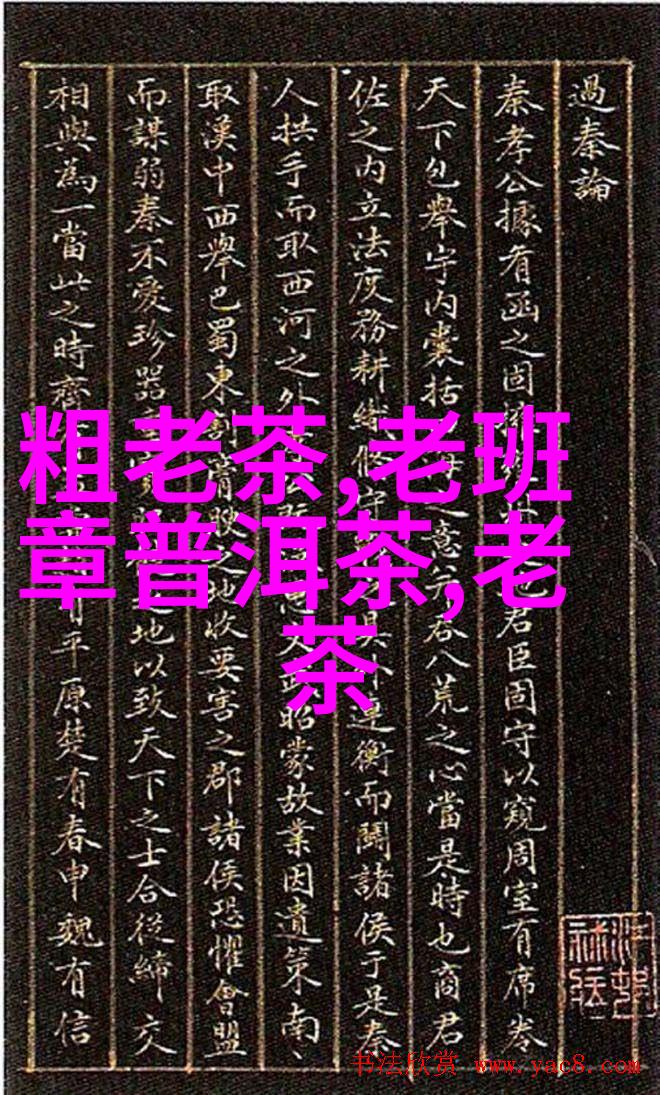 過秦論
秦孝公據有函之固地君臣固守以窺周室有席卷
天下包舉宇内囊括之意吞八荒之心當是時也商君
佐之内立法度務耕織修守之具外連衡而鬪諸侯于是秦
人拱手而取西河之外文武昭蒙故業因遺策南
取漢中西舉巴蜀東割膏腴之地收要害之郡諸侯恐懼會盟
而謀弱秦不愛珍器之地以致天下之士合從締交
相與為一當此之時齊有平原楚有春申魏有信
粗老茶,老班
章普洱茶,老
茶
书法欣赏 www.yac8.com